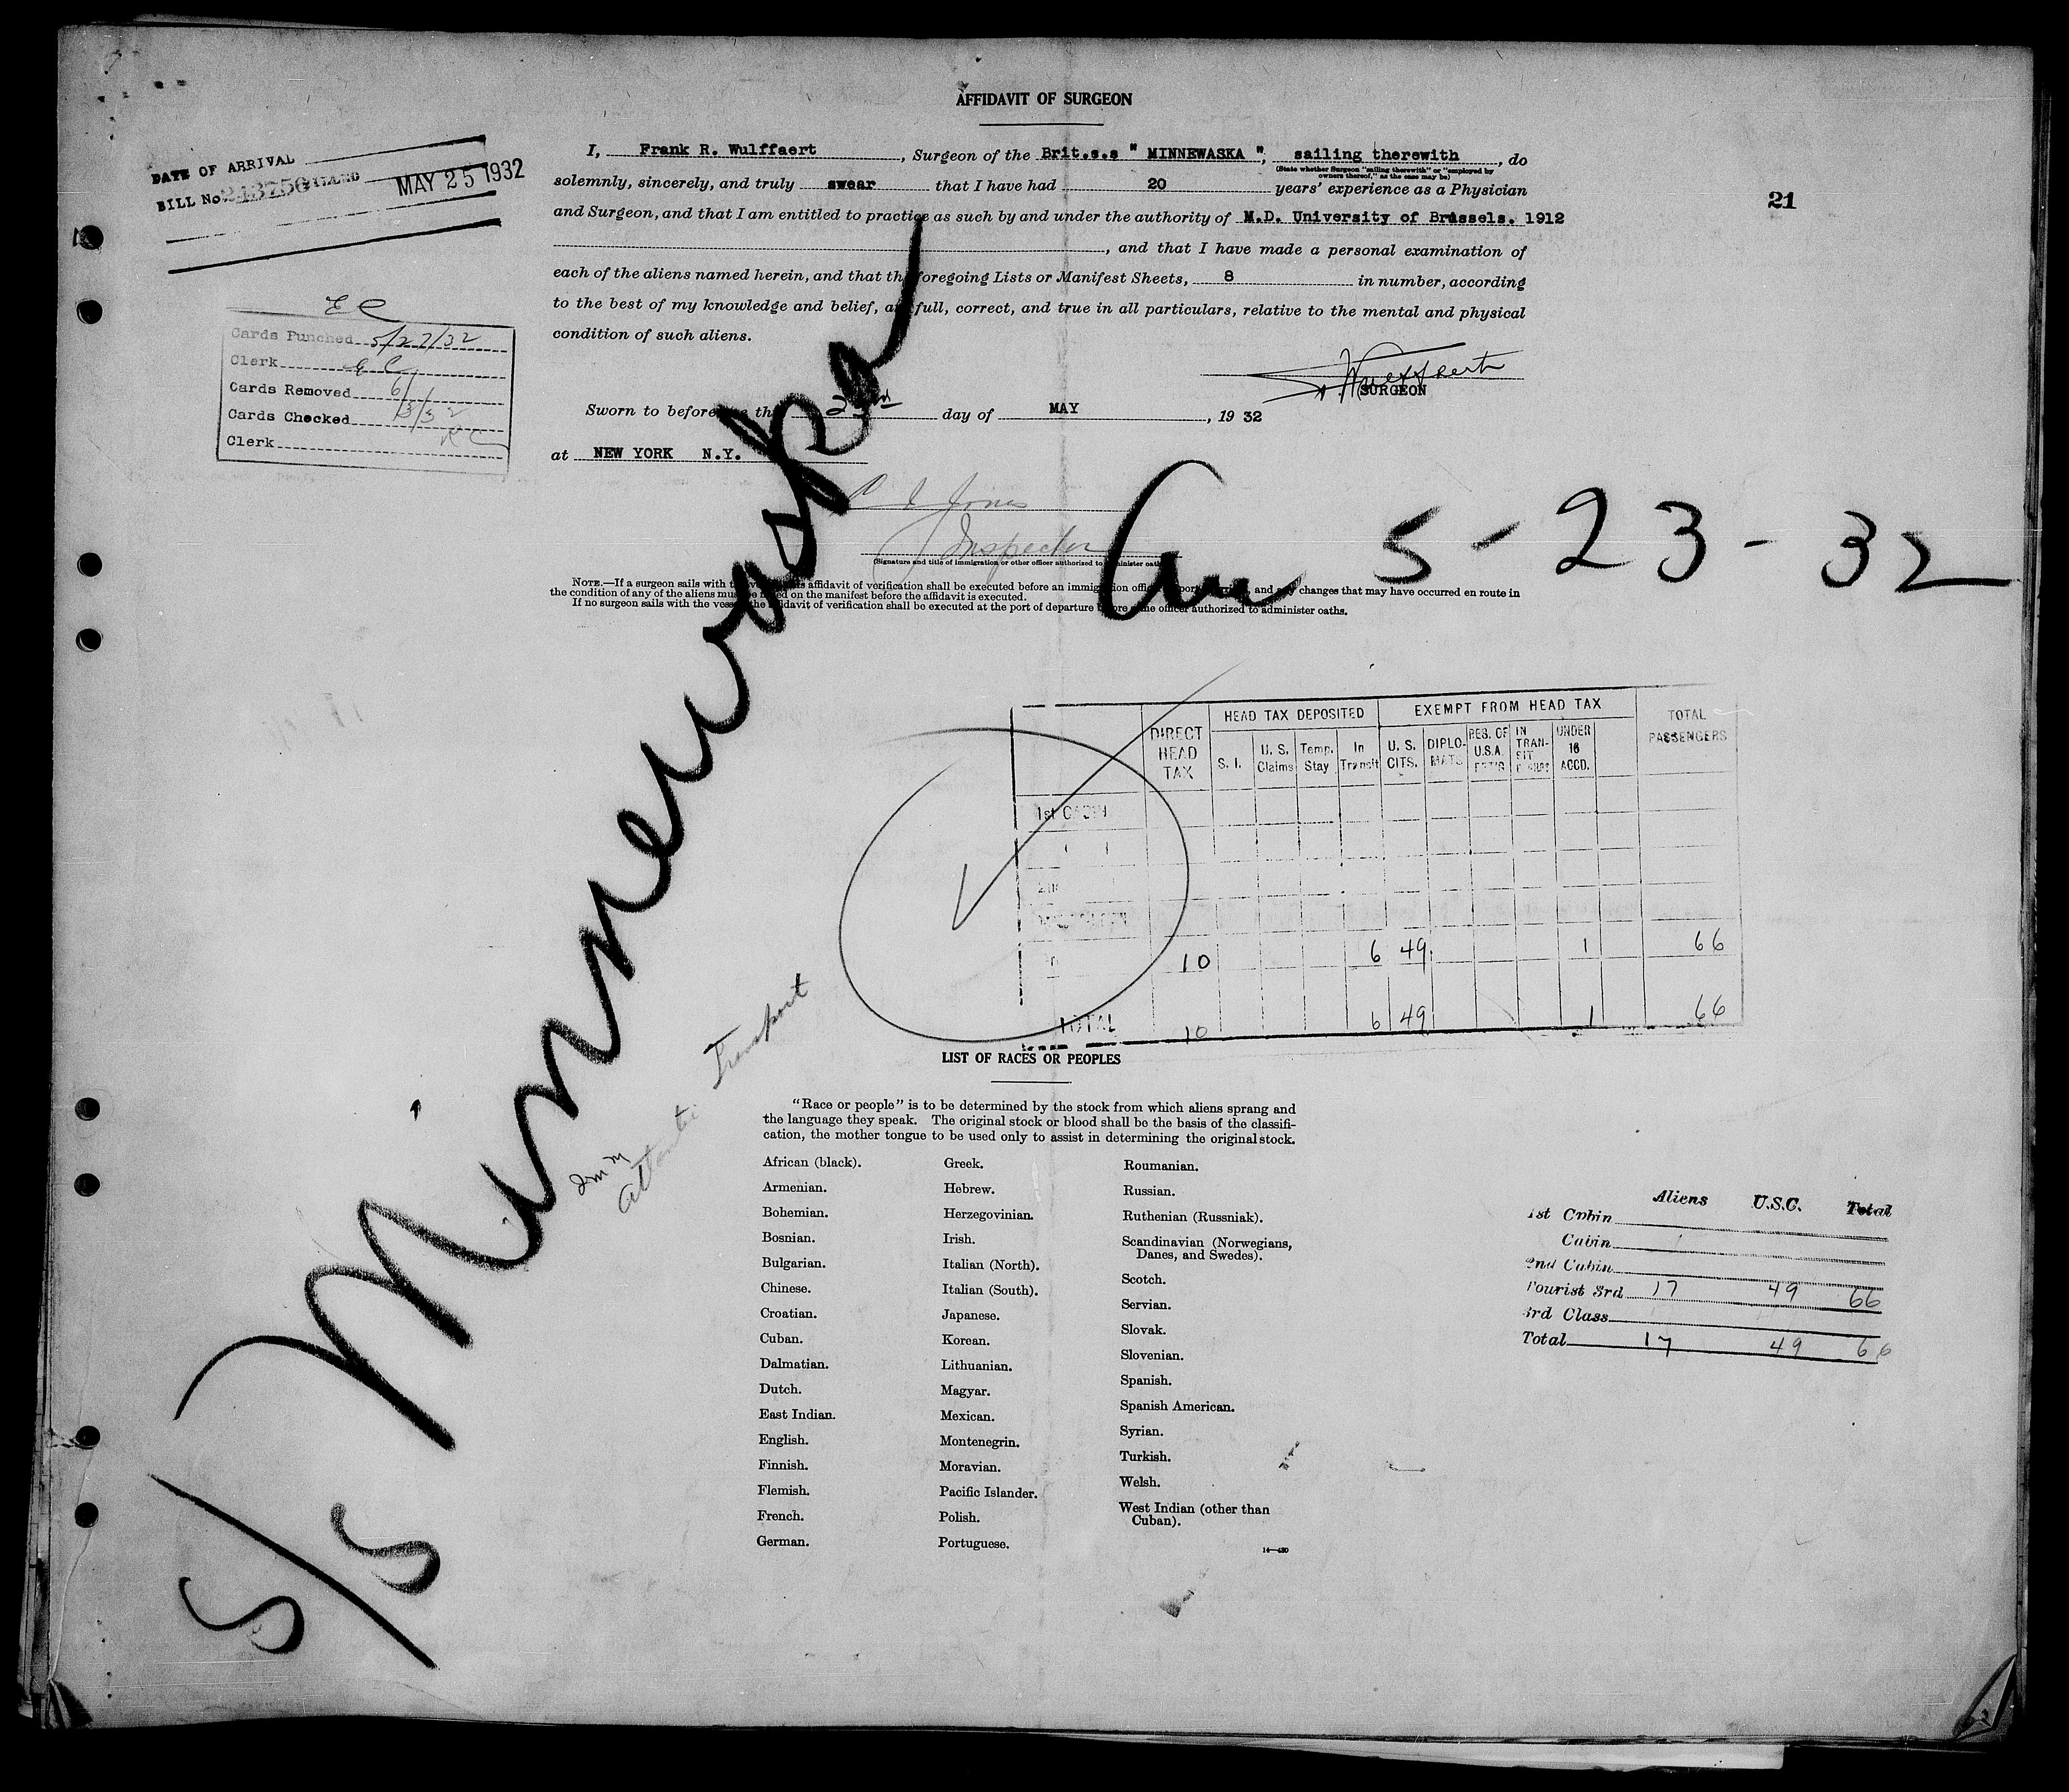 AFFIDAVIT OF SURGEON
DATE OF ARRIVAL
BILL No. MAY 25 1932
21
I, Frank R. Wulffaert, Surgeon of the Brit.s.s " MINNEWASKA ", sailing therewith, do
(State whether Surgeon "sailing therewith" or "employed by
owners thereof," as the case may be)
solemnly, sincerely, and truly swear that I have had 20 years' experience as a Physician
and Surgeon, and that I am entitled to practice as such by and under the authority of M.D. University of Brussels. 1912
, and that I have made a personal examination of
each of the aliens named herein, and that the foregoing Lists or Manifest Sheets, 8 in number, according
to the best of my knowledge and belief, are full, correct, and true in all particulars, relative to the mental and physical
condition of such aliens.
E C
Cards Punched 5/27/32
Clerk E C
Cards Removed 6/
Cards Checked
Clerk
Wulffaert
SURGEON
Sworn to before me this 23rd day of MAY, 19 32
at NEW YORK N.Y.
Jones
Inspector
(Signature and title of immigration or other officer authorized to administer oaths)
5 - 23 - 32
NOTE.—If a surgeon sails with the vessel, this affidavit of verification shall be executed before an immigration officer port and any changes that may have occurred en route in
the condition of any of the aliens must be noted on the manifest before the affidavit is executed.
If no surgeon sails with the vessel, the affidavit of verification shall be executed at the port of departure before some officer authorized to administer oaths.
S/S Minnewaska
Atlantic Transport
DIRECT HEAD TAX HEAD TAX DEPOSITED EXEMPT FROM HEAD TAX TOTAL PASSENGERS
S. I. U. S. Claims Temp. Stay In Transit U. S. CITS. DIPLOMATS RES. OF U.S.A. IN TRANSIT UNDER 16 ACCD.
1st CABIN
10 6 49 1 66
TOTAL 10 6 49 1 66
LIST OF RACES OR PEOPLES
"Race or people" is to be determined by the stock from which aliens sprang and
the language they speak. The original stock or blood shall be the basis of the classifi-
cation, the mother tongue to be used only to assist in determining the original stock.
African (black).
Armenian.
Bohemian.
Bosnian.
Bulgarian.
Chinese.
Croatian.
Cuban.
Dalmatian.
Dutch.
East Indian.
English.
Finnish.
Flemish.
French.
German.
Greek.
Hebrew.
Herzegovinian.
Irish.
Italian (North).
Italian (South).
Japanese.
Korean.
Lithuanian.
Magyar.
Mexican.
Montenegrin.
Moravian.
Pacific Islander.
Polish.
Portuguese.
Roumanian.
Russian.
Ruthenian (Russniak).
Scandinavian (Norwegians,
Danes, and Swedes).
Scotch.
Servian.
Slovak.
Slovenian.
Spanish.
Spanish American.
Syrian.
Turkish.
Welsh.
West Indian (other than
Cuban).
Aliens U.S.C. Total
1st Cabin
Cabin
2nd Cabin
Tourist 3rd 17 49 66
3rd Class
Total 17 49 66